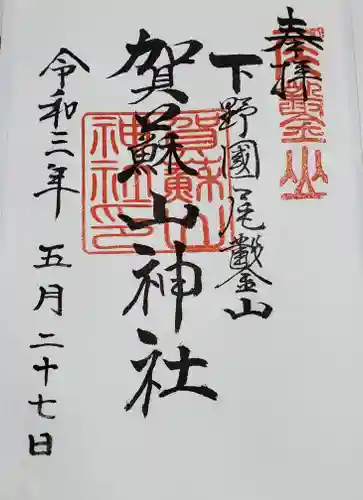 奉拝
下野國尾鑿山
賀蘇山神社
賀蘇山
神社印
令和三年 五月二十七日